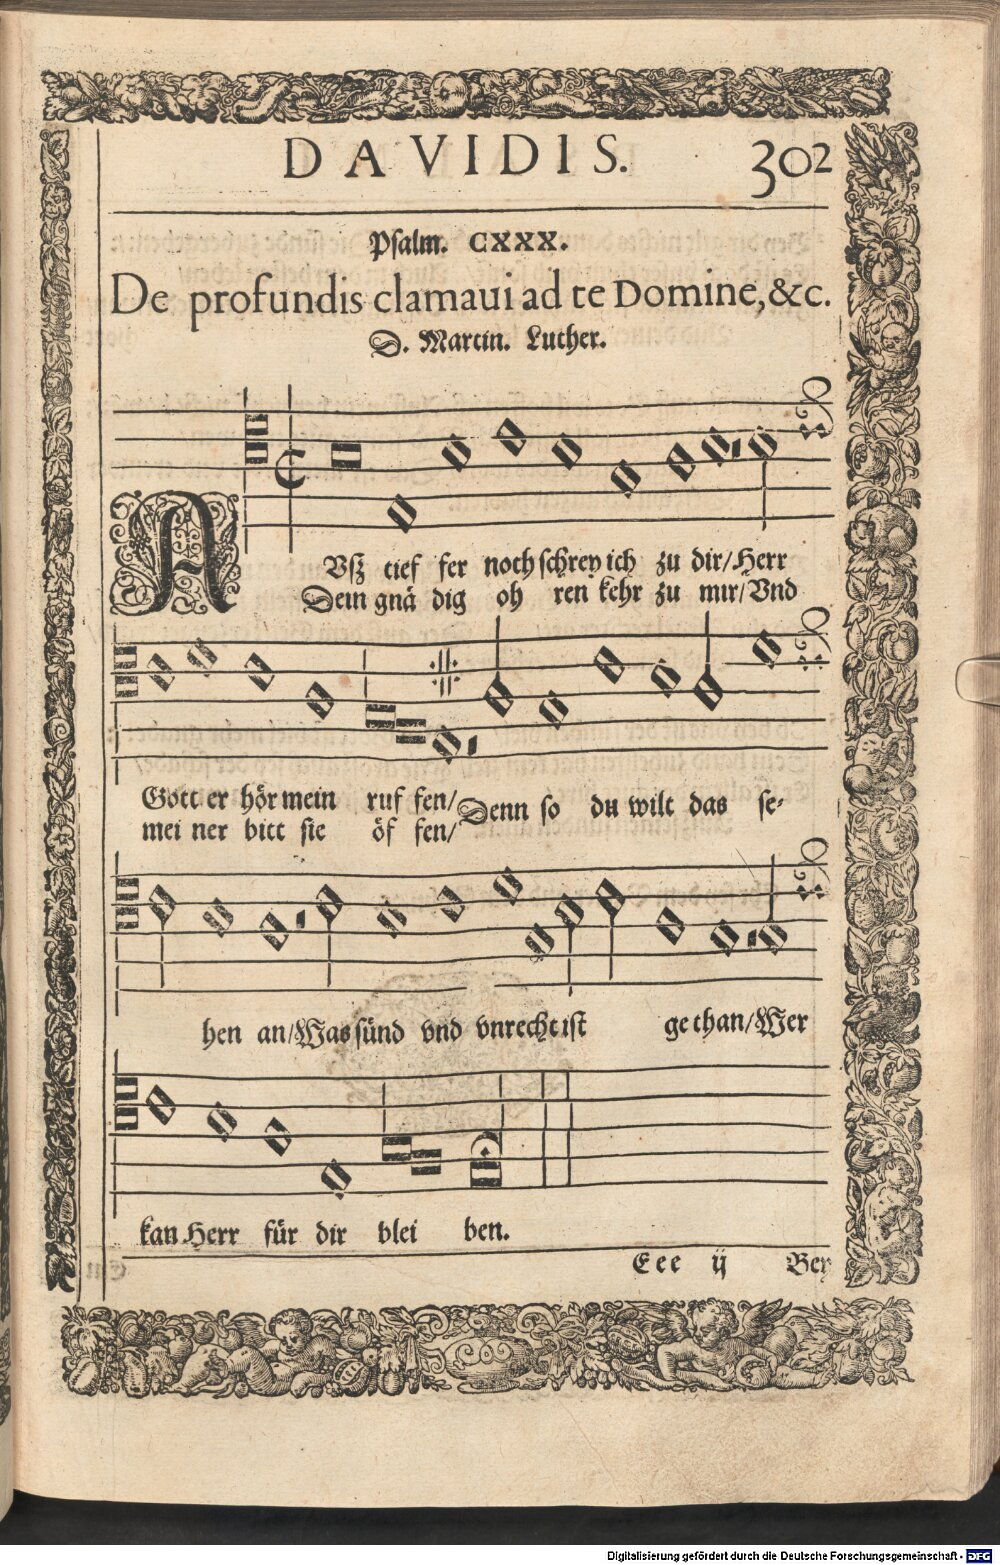 DAVIDIS. 302
Psalm. CXXX.
De profundis clamaui ad te Domine, &c.
D. Martin. Luther.
AVsz tief fer noch schrey ich zu dir/ Herr
Dein gnä dig oh ren kehr zu mir/ Vnd
Gott er hör mein ruf fen/ Denn so du wilt das se-
mei ner bitt sie öf fen/
hen an/ Was sünd vnd vnrecht ist ge than/ Wer
kan Herr für dir blei ben.
Eee ij Bey
Digitalisierung gefördert durch die Deutsche Forschungsgemeinschaft - DFG